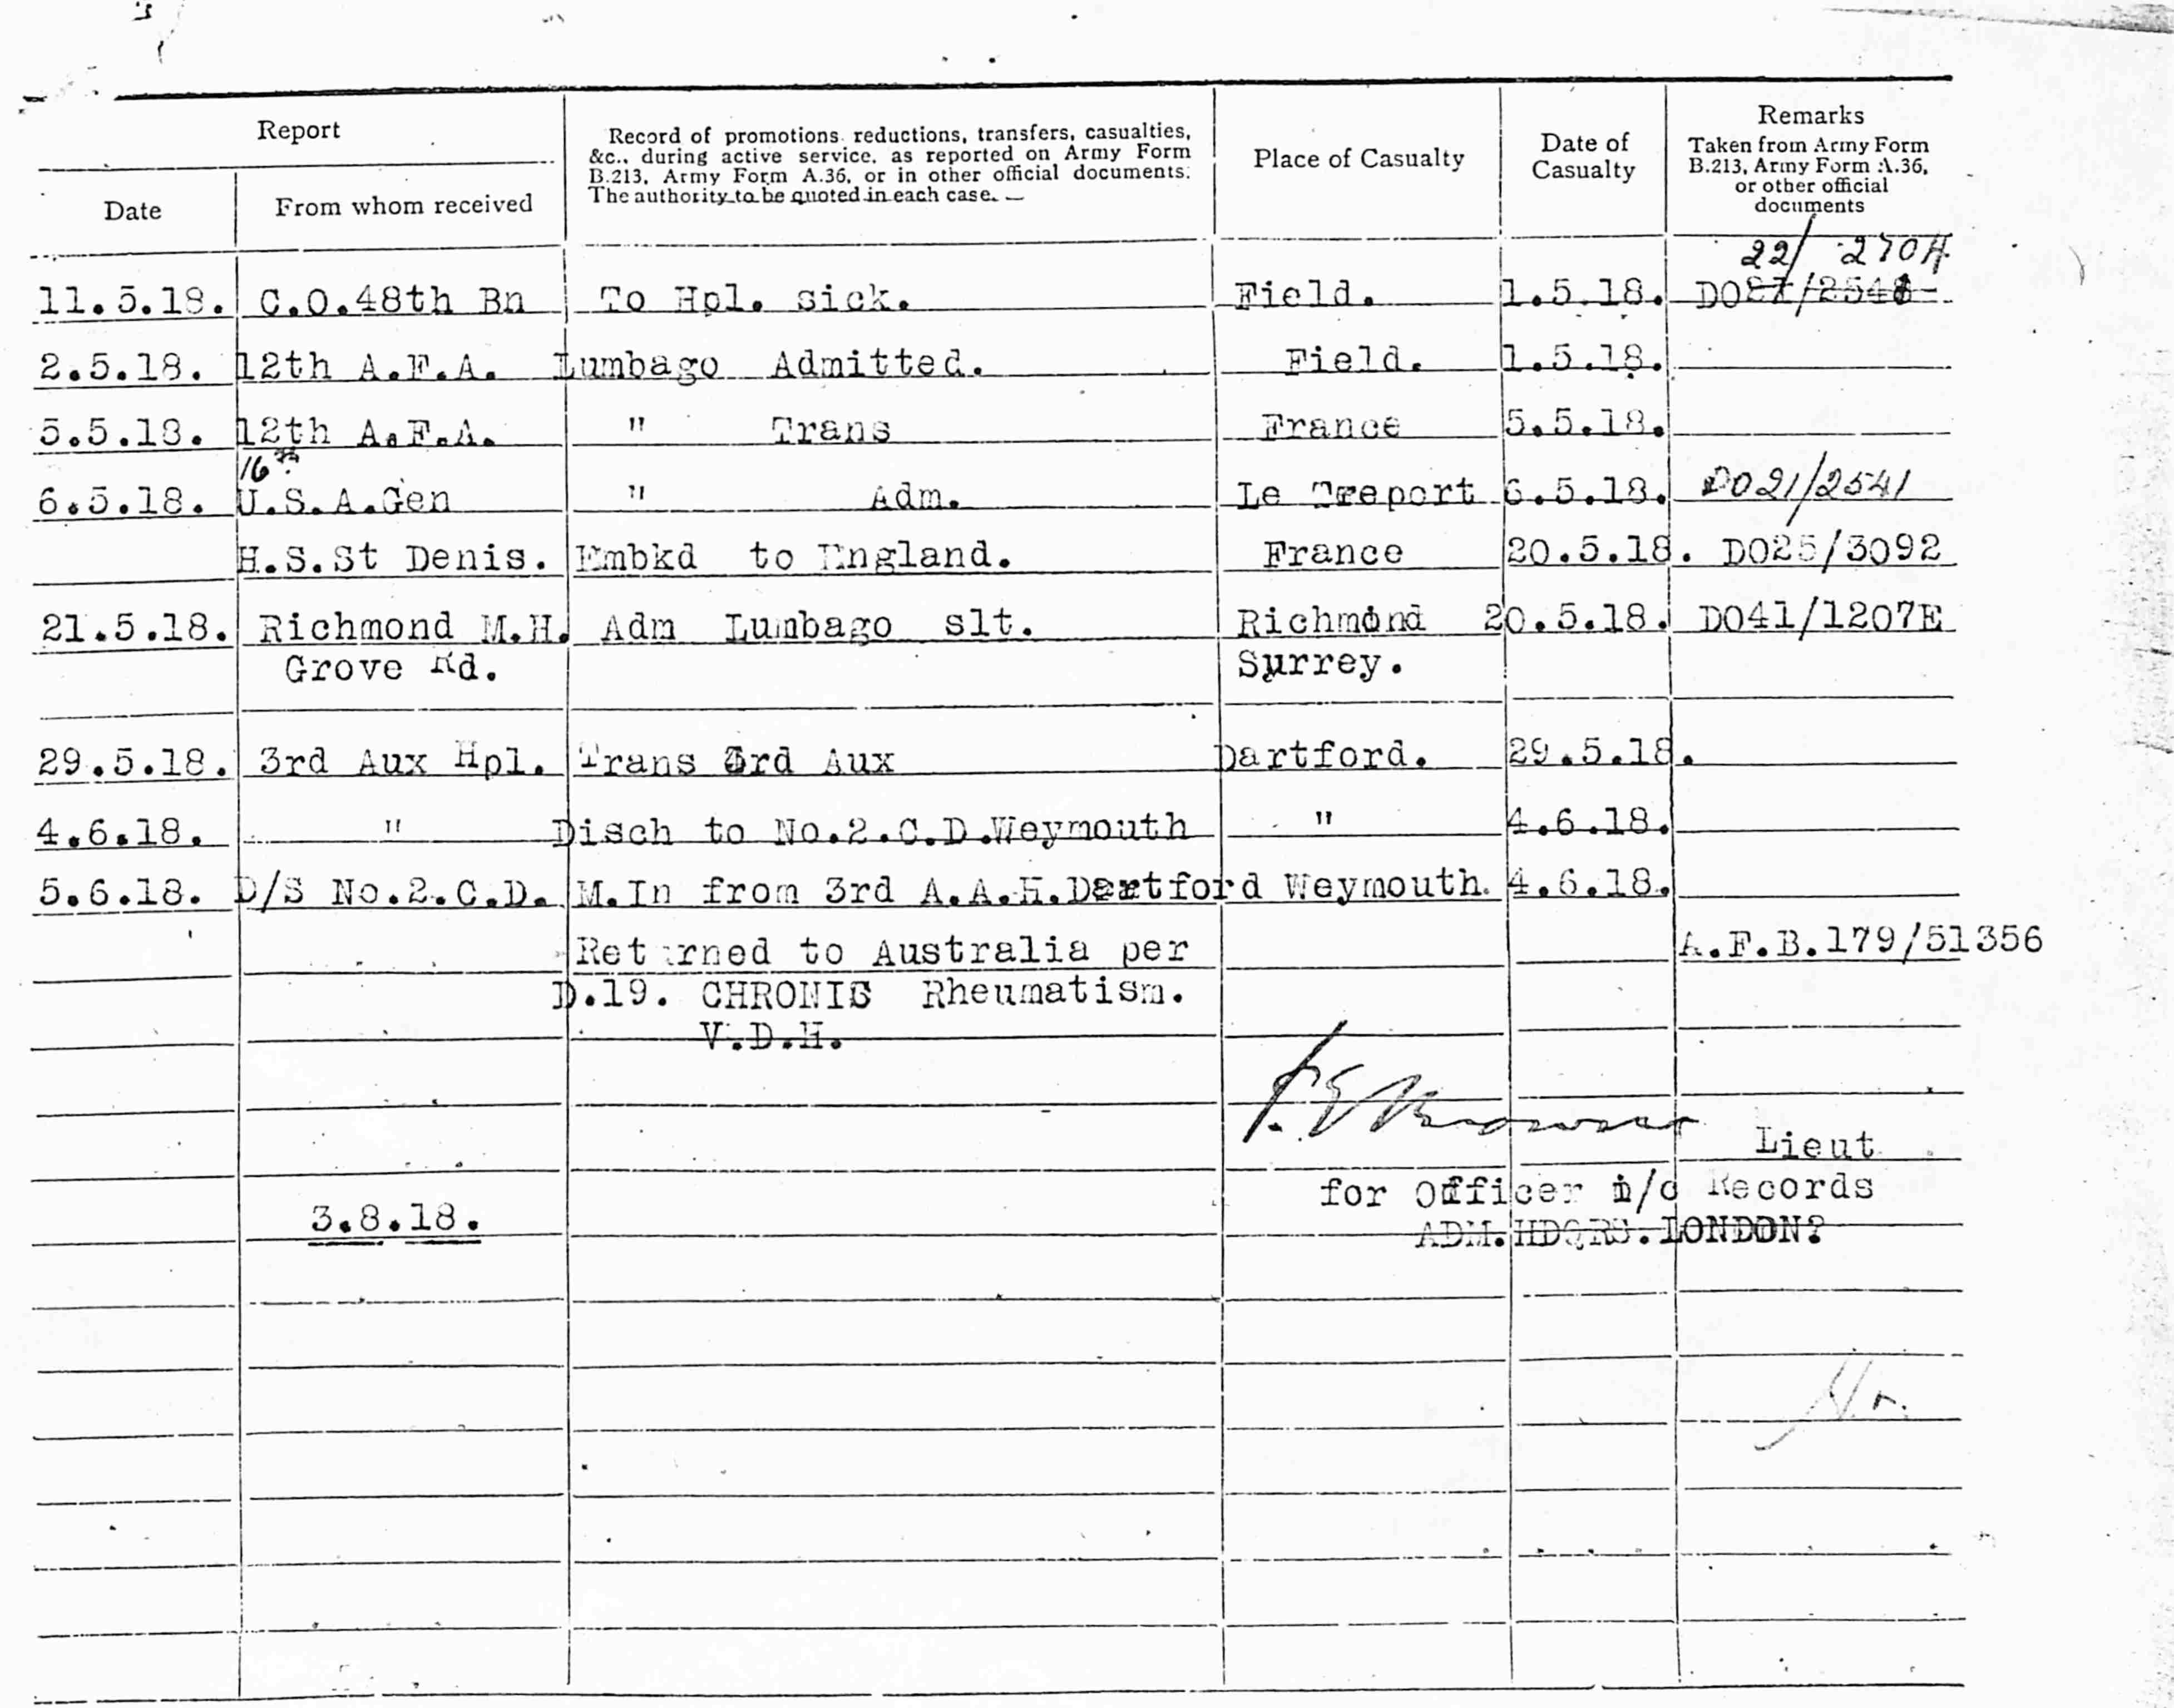 Report
Record of promotions, reductions, transfers, casualties,
&c., during active service, as reported on Army Form
B.213, Army Form A.36, or in other official documents.
The authority to be quoted in each case.
Place of Casualty
Date of
Casualty
Remarks
Taken from Army Form
B.213, Army Form A.36,
or other official
documents
Date From whom received
22/ 270H
11.5.18. C.O.48th Bn To Hpl. sick. Field. 1.5.18. DO21/2541
2.5.18. 12th A.F.A. Lumbago Admitted. Field. 1.5.18.
5.5.18. 12th A.F.A. " Trans France 5.5.18.
16th
6.5.18. U.S.A.Gen " Adm. Le Treport 6.5.18. DO21/2541
H.S.St Denis. Embkd to England. France 20.5.18. DO25/3092
21.5.18. Richmond M.H. Adm Lumbago slt. Richmond 20.5.18. DO41/1207E
Grove Rd. Surrey.
29.5.18. 3rd Aux Hpl. Trans 3rd Aux Dartford. 29.5.18.
4.6.18. " Disch to No.2.C.D.Weymouth " 4.6.18.
5.6.18. D/S No.2.C.D. M.In from 3rd A.A.H.Dartford Weymouth. 4.6.18.
Returned to Australia per A.F.B.179/51356
D.19. CHRONIC Rheumatism.
V.D.H.
Lieut
for Officer i/c Records
3.8.18. ADM.HDQRS.LONDON?